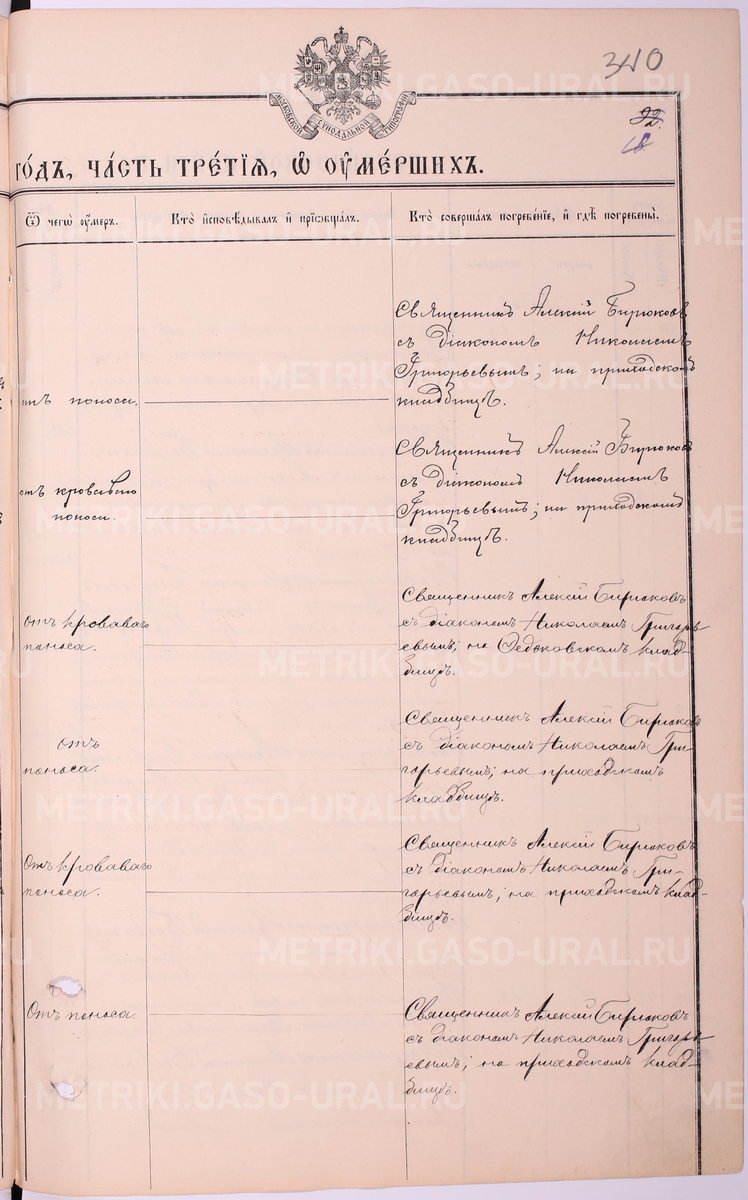 340
МОСКОВСКОЙ СѴНОДАЛЬНОЙ ТИПОГРАФІИ
92.
18
ГО́ДЪ, ЧА́СТЬ ТРЕ́ТІѦ, Ѡ҆ ОУ҆МЕ́РШИХЪ.
Ѿ чегѡ̀ оу҆́меръ.
Кто̀ и҆сповѣ́дывалъ и҆ прїѡбща́лъ.
Кто̀ соверша́лъ погребе́нїе, и҆ гдѣ̀ погребены̀.
отъ поноса.
Священникъ Алексій Бирюковъ
съ діакономъ Николаемъ
Григорьевымъ; на приходскомъ
кладбищѣ.
отъ кроваваго
поноса.
Священникъ Алексій Бирюковъ
съ діакономъ Николаемъ
Григорьевымъ; на приходскомъ
кладбищѣ.
Отъ кроваваго
поноса.
Священникъ Алексій Бирюковъ
съ діаконом Николаемъ Григорь-
евымъ; на Федьковскомъ клад-
бищѣ.
Отъ
поноса.
Священникъ Алексій Бирюковъ
съ діаконом Николаемъ Гри-
горьевымъ; на приходскомъ
кладбищѣ.
Отъ кроваваго
поноса.
Священникъ Алексій Бирюковъ
съ діаконом Николаемъ Гри-
горьевымъ; на приходскомъ клад-
бищѣ.
Отъ поноса.
Священникъ Алексій Бирюковъ
съ діаконом Николаемъ Григорь-
евымъ; на приходскомъ клад-
бищѣ.
METRIKI.GASO-URAL.RU